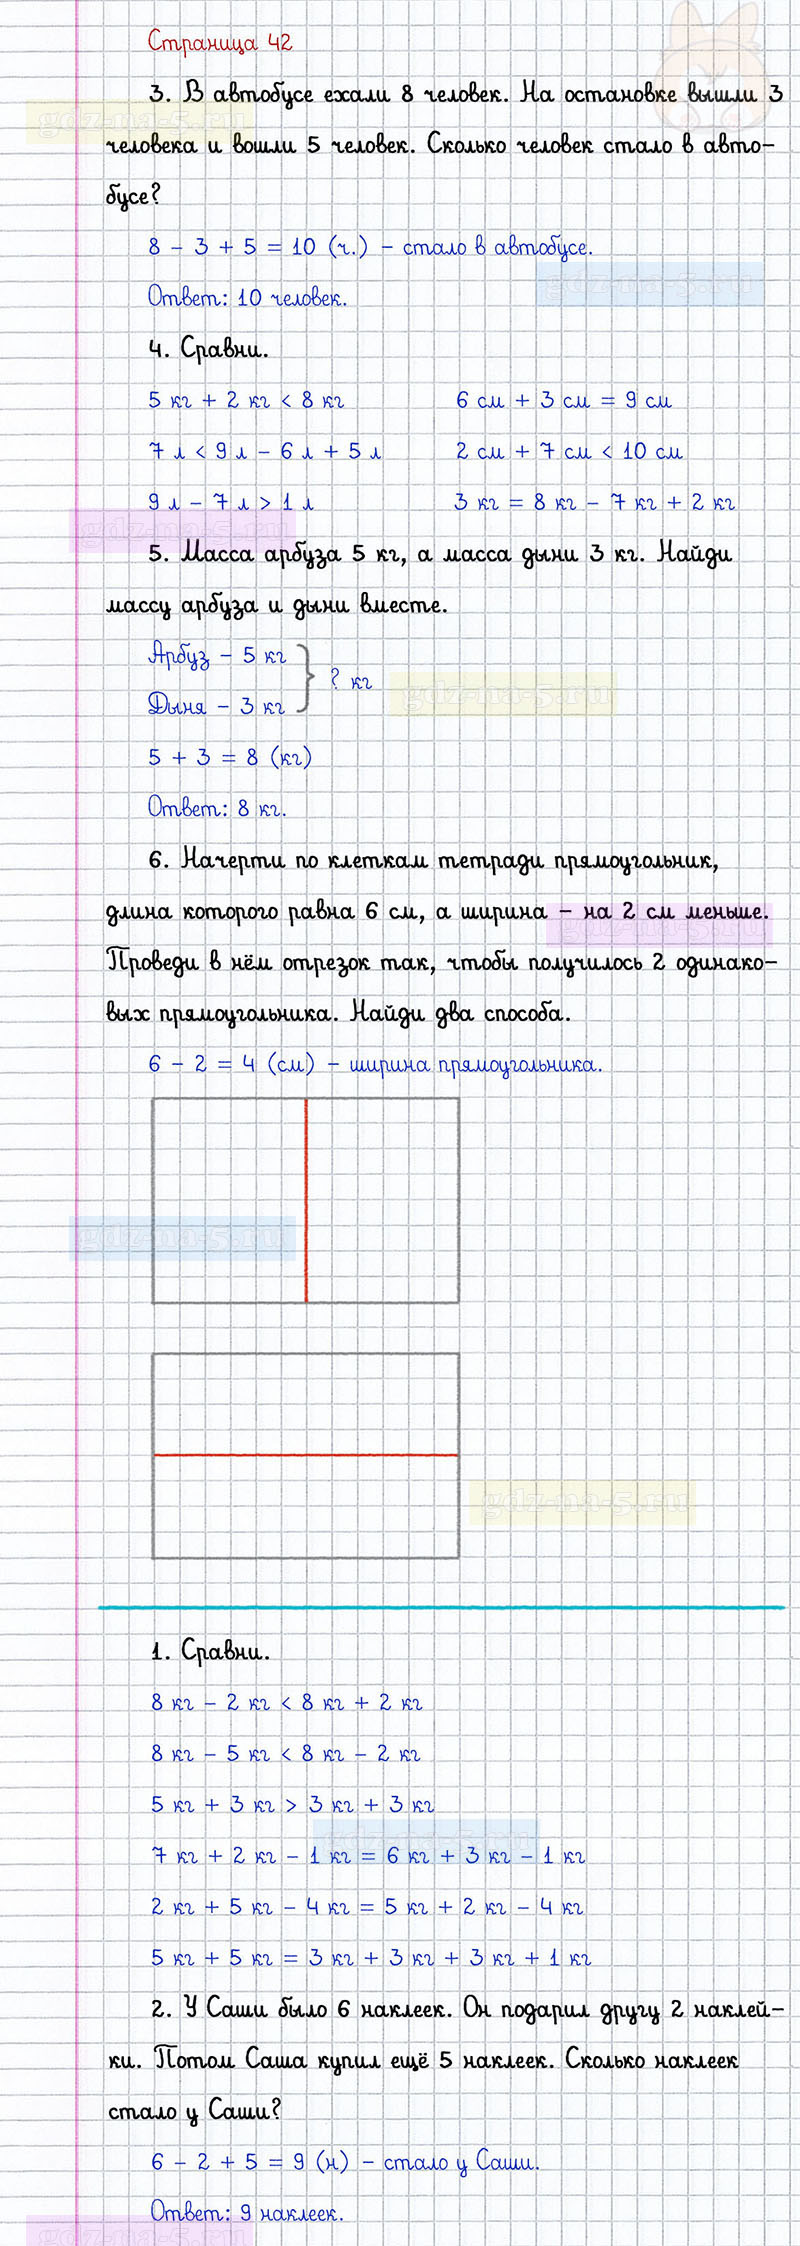 Страница 42
3. В автобусе ехали 8 человек. На остановке вышли 3
gdz-na-5.ru
человека и вошли 5 человек. Сколько человек стало в авто-
бусе?
8 - 3 + 5 = 10 (ч.) - стало в автобусе.
gdz-na-5.ru
Ответ: 10 человек.
4. Сравни.
5 кг + 2 кг < 8 кг 6 см + 3 см = 9 см
7 л < 9 л - 6 л + 5 л 2 см + 7 см < 10 см
9 л - 7 л > 1 л 3 кг = 8 кг - 7 кг + 2 кг
gdz-na-5.ru
5. Масса арбуза 5 кг, а масса дыни 3 кг. Найди
массу арбуза и дыни вместе.
Арбуз - 5 кг
? кг
gdz-na-5.ru
Дыня - 3 кг
5 + 3 = 8 (кг)
Ответ: 8 кг.
6. Начерти по клеткам тетради прямоугольник,
длина которого равна 6 см, а ширина - на 2 см меньше.
gdz-na-5.ru
Проведи в нём отрезок так, чтобы получилось 2 одинако-
вых прямоугольника. Найди два способа.
6 - 2 = 4 (см) - ширина прямоугольника.
gdz-na-5.ru
gdz-na-5.ru
1. Сравни.
8 кг - 2 кг < 8 кг + 2 кг
8 кг - 5 кг < 8 кг - 2 кг
5 кг + 3 кг > 3 кг + 3 кг
gdz-na-5.ru
7 кг + 2 кг - 1 кг = 6 кг + 3 кг - 1 кг
2 кг + 5 кг - 4 кг = 5 кг + 2 кг - 4 кг
5 кг + 5 кг = 3 кг + 3 кг + 3 кг + 1 кг
2. У Саши было 6 наклеек. Он подарил другу 2 наклей-
ки. Потом Саша купил ещё 5 наклеек. Сколько наклеек
стало у Саши?
6 - 2 + 5 = 9 (н) - стало у Саши.
Ответ: 9 наклеек.
gdz-na-5.ru